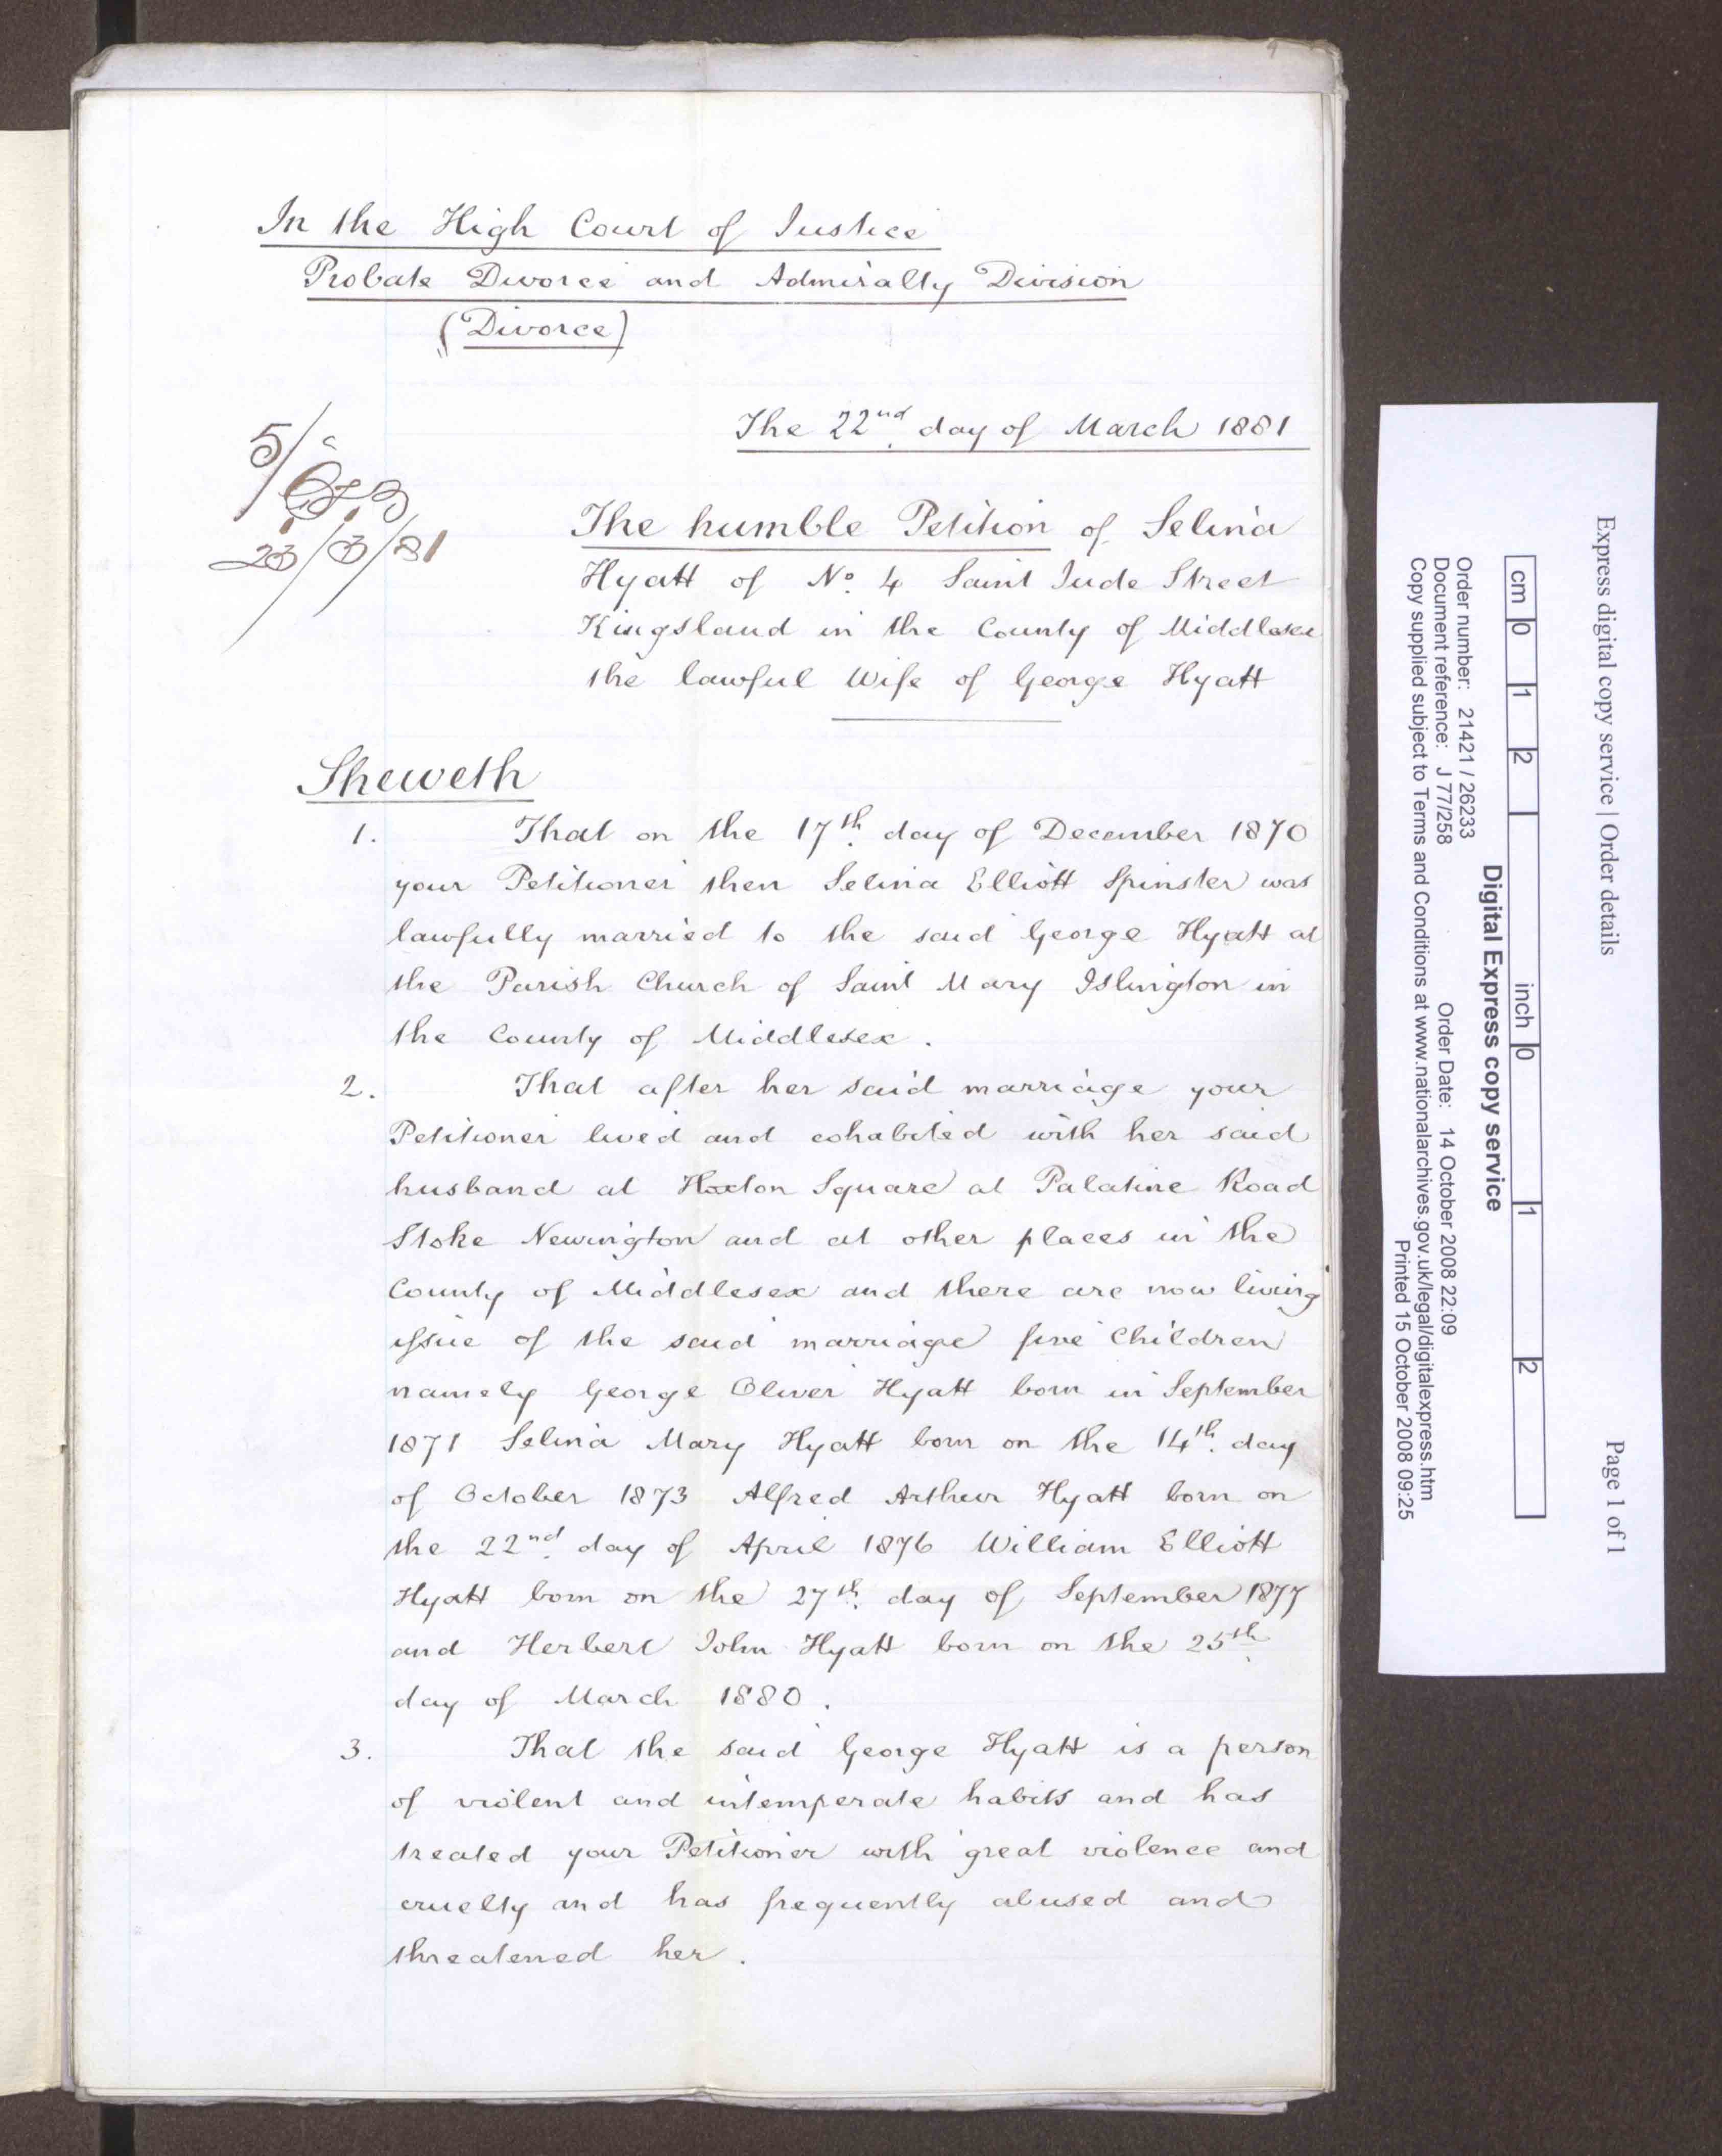 9
In the High Court of Justice
Probate Divorce and Admiralty Division
(Divorce)
The 22nd day of March 1881
5/
23/3/81
The humble Petition of Selina
Hyatt of No. 4 Saint Jude Street
Kingsland in the County of Middlesex
the lawful Wife of George Hyatt
Sheweth
1. That on the 17th day of December 1870
your Petitioner then Selina Elliott Spinster was
lawfully married to the said George Hyatt at
the Parish Church of Saint Mary Islington in
the County of Middlesex.
2. That after her said marriage your
Petitioner lived and cohabited with her said
husband at Hoxton Square at Palatine Road
Stoke Newington and at other places in the
County of Middlesex and there are now living
issue of the said marriage five Children
namely George Oliver Hyatt born in September
1871 Selina Mary Hyatt born on the 14th day
of October 1873 Alfred Arthur Hyatt born on
the 22nd day of April 1876 William Elliott
Hyatt born on the 27th day of September 1877
and Herbert John Hyatt born on the 25th
day of March 1880.
3. That the said George Hyatt is a person
of violent and intemperate habits and has
treated your Petitioner with great violence and
cruelty and has frequently abused and
threatened her.
Express digital copy service | Order details Page 1 of 1
cm 0 1 2 inch 0 1 2
Digital Express copy service
Order number: 21421 / 26233 Order Date: 14 October 2008 22:09
Document reference: J 77/258
Copy supplied subject to Terms and Conditions at www.nationalarchives.gov.uk/legal/digitalexpress.htm
Printed 15 October 2008 09:25